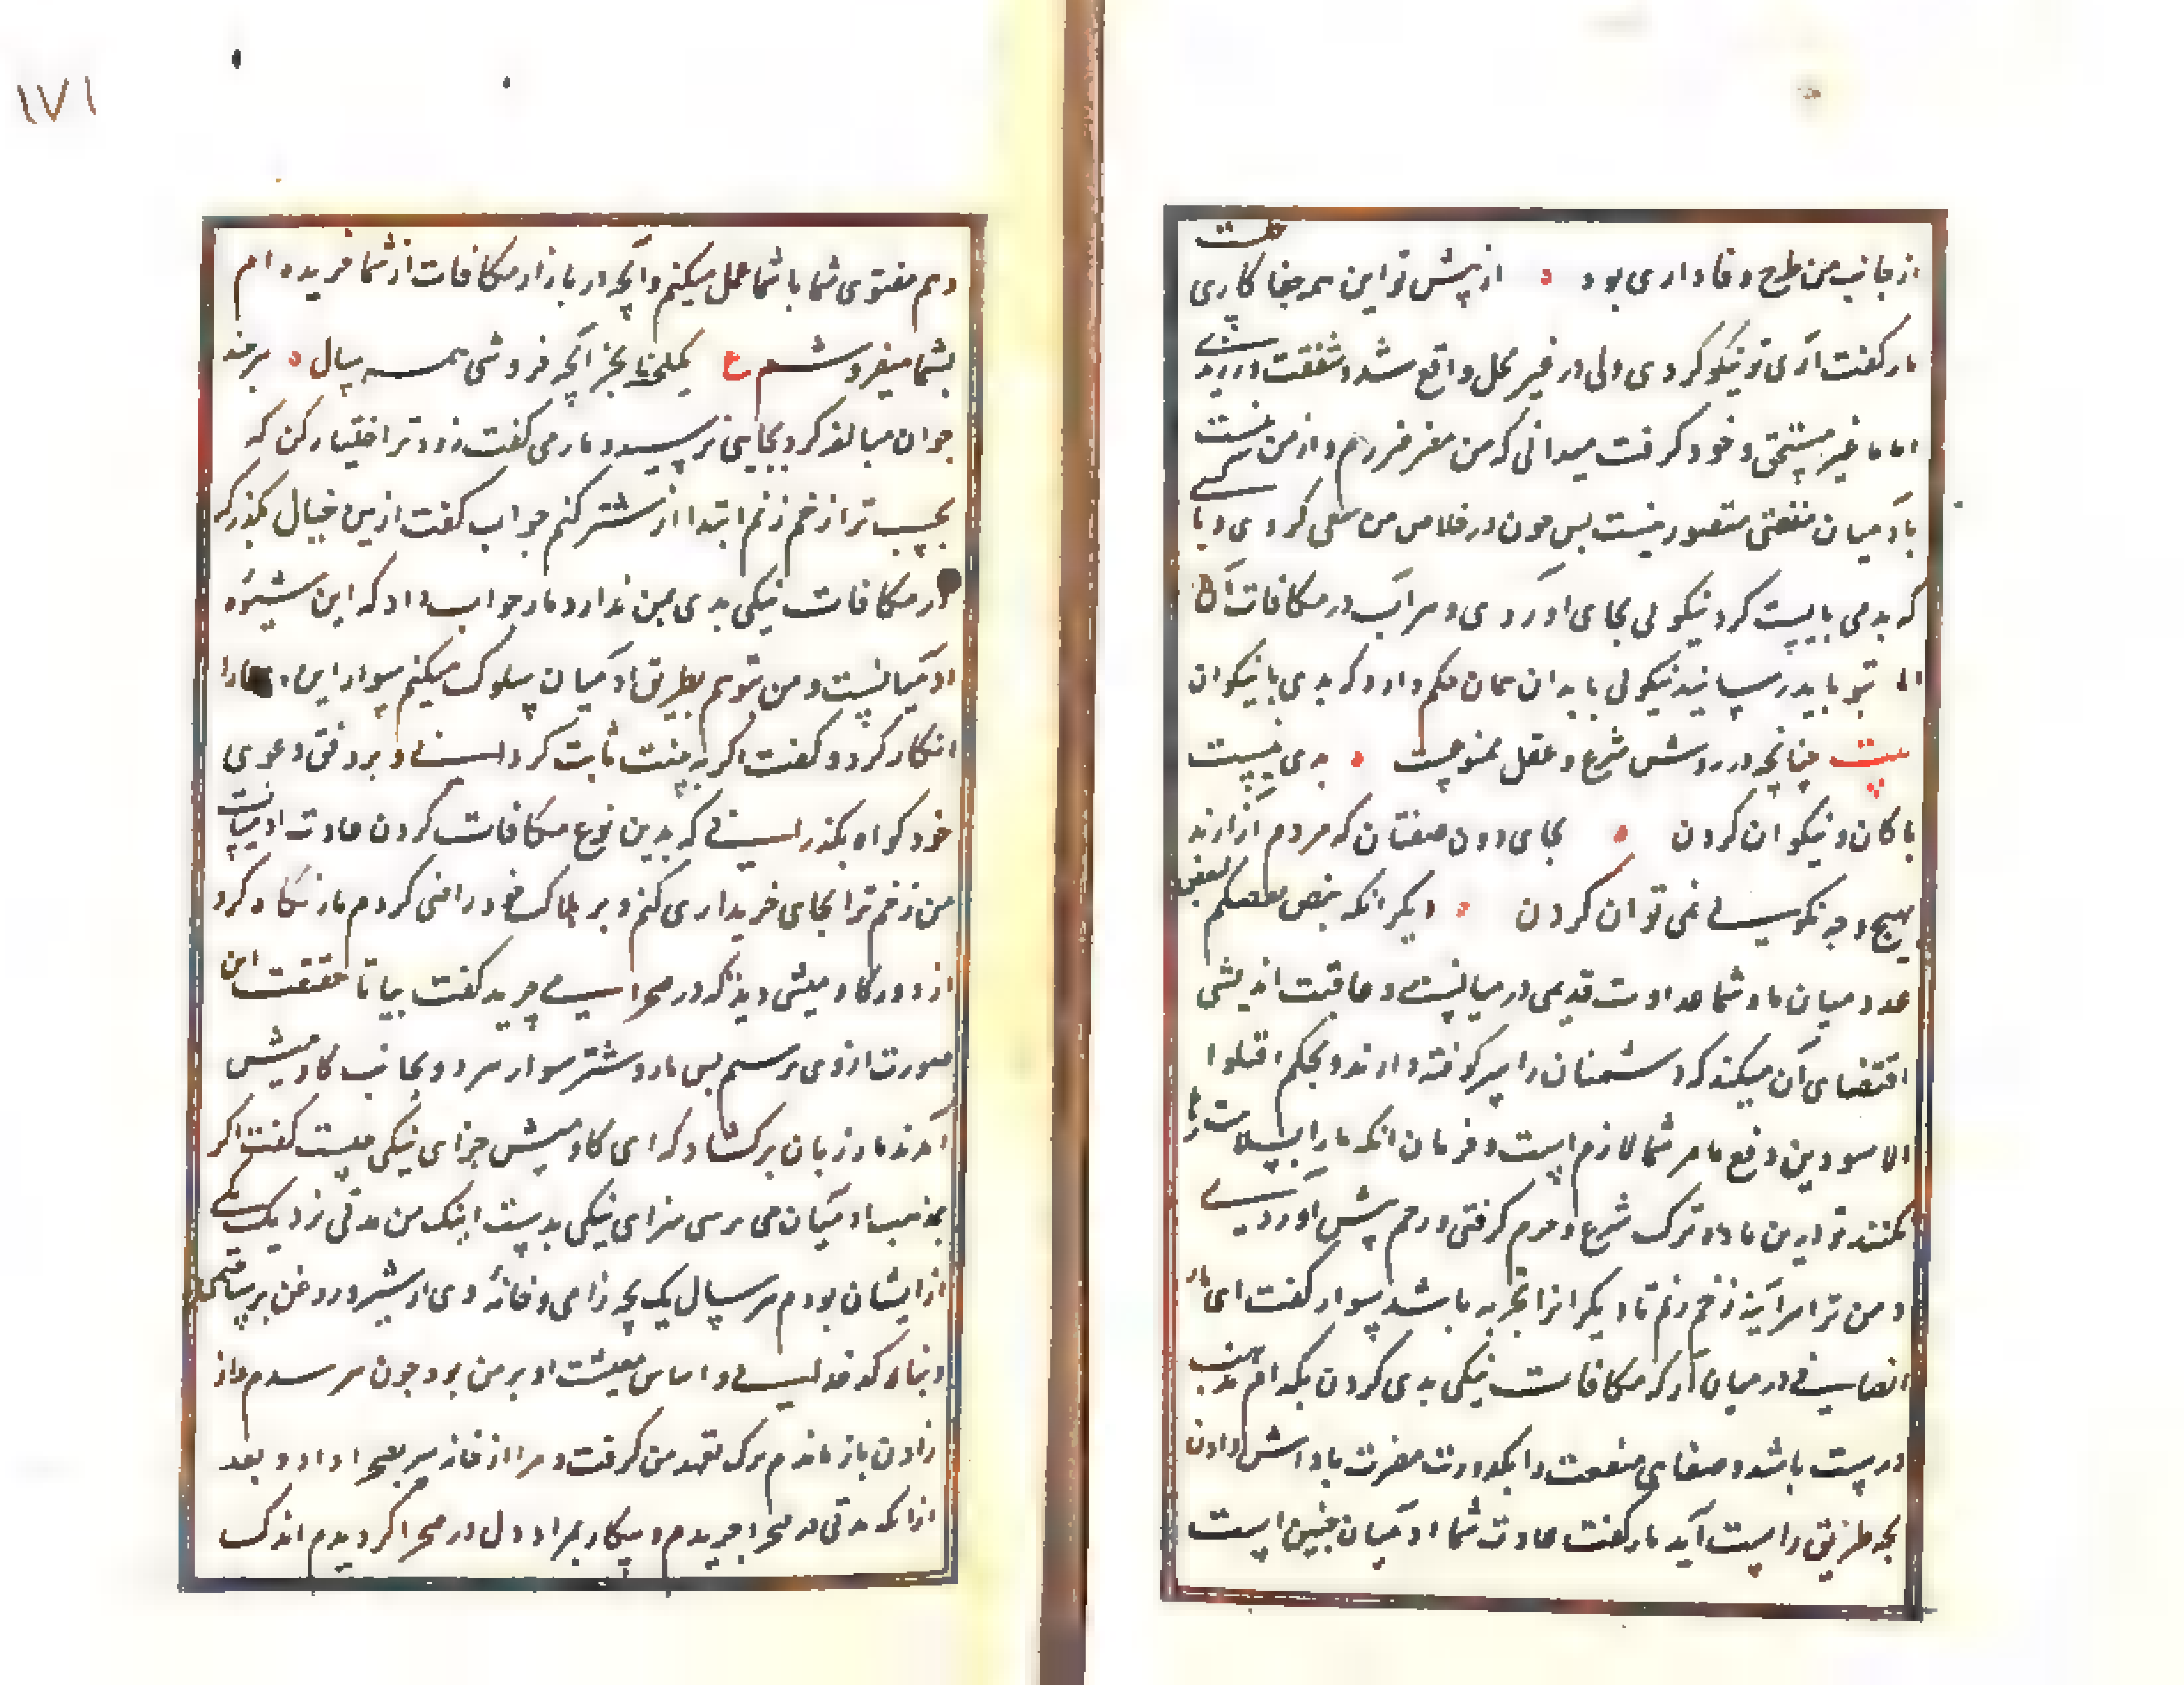 از جانب من طرح وفاداری بود از پیش تو این همه جفا کاری چیست
مار گفت آری تو نیکو کردی ولی در غیر محل واقع شد و شفقت ورزیدی
اما با غیر مستحق وجود گرفت میدانی که من مظهر ضررم و از من نسبت
با آدمیان منفعتی متصور نیست پس چون در خلاص من سعی کردی و با کسی
که بدی بایست کرد نیکوئی بجای آوردی هر آینه در مکافات آن
المی بتو باید رسانید نیکوئی با بدان همان حکم دارد که بدی با نیکوان
بیت چنانچه در روش شرع و عقل ممنوعست بدی نیست
با پاکان و نیکوان کردن بجای دون صفتان که مردم آزارند
بهیچ وجه نکویی نمی توان کردن دیگر آنکه بنص بعضکم لبعض
عدو میان ما و شما عداوت قدیمی در میانست و عاقبت اندیشی
اقتضای آن میکند که دشمنان را سر کوفته دارند و بحکم اقتلوا
الاسودین دفع ما بر شما لازم است و فرمان آنکه ما را بسلامت رها
نکنند تو درین ماده ترک شرع و حزم گرفتی و رحم پیش آوردی
و من ترا هر آینه زخم زنم تا دیگران را تجربه باشد سوار گفت ای مار
انصافی در میان آر که مکافات نیکی بدی کردن بکدام مذهب
درست باشد و صفای منفعت را بکدورت مضرت پاداش دادن
بچه طریق راست آید مار گفت عادت شما آدمیان چنین است
۱۷۱
و هم بفتوی شما با شما عمل میکنم و آنچه در بازار مکافات از شما خریده ام
بشما میفروشم ع یکلحظه بخر آنچه فروشی همه سال هر چند
جوان مبالغه کرد بجایی نرسید و مار می گفت زودتر اختیار کن که
نخست ترا زخم زنم یا ابتدا از شتر کنم جوان گفت ازین خیال بگذر که
در مکافات نیکی بدی یمن ندارد مار جواب داد که این شیوه
آدمیانست و من هم بطریق آدمیان سلوک میکنم سوار این دعوی را
انکار کرد و گفت اگر به بینت ثابت کردانی و بر وفق دعوی
خود گواه بگذرانی که بدین نوع مکافات کردن عادت آدمیانست
من زخم ترا بجای خریداری کنم و بر هلاک خود راضی کردم مار نگاه کرد
از دور گاو میشی دید که در صحرا می چرید گفت بیا تا حقیقت این
صورت از وی پرسیم پس مار و شتر سوار هر دو بجانب گاو میش
آمدند مار زبان برگشاد که ای گاو میش جزای نیکی چیست گفت اگر
بمذهب آدمیان می پرسی سزای نیکی بدیست اینک من مدتی نزدیک یکی
از ایشان بودم هر سال یک بچه زادمی و خانه وی از شیر و روغن پر ساختمی
و بناء کدخدائی و اساس معیشت او بر من بود چون پیر شدم و از
زادن باز ماندم ترک تعهد من گرفت و مرا از خانه بیرون بصحرا داد و بعد
از آنکه مدتی در صحرا چریدم و بیکار بمراد دل در صحرا گردیدم اندک